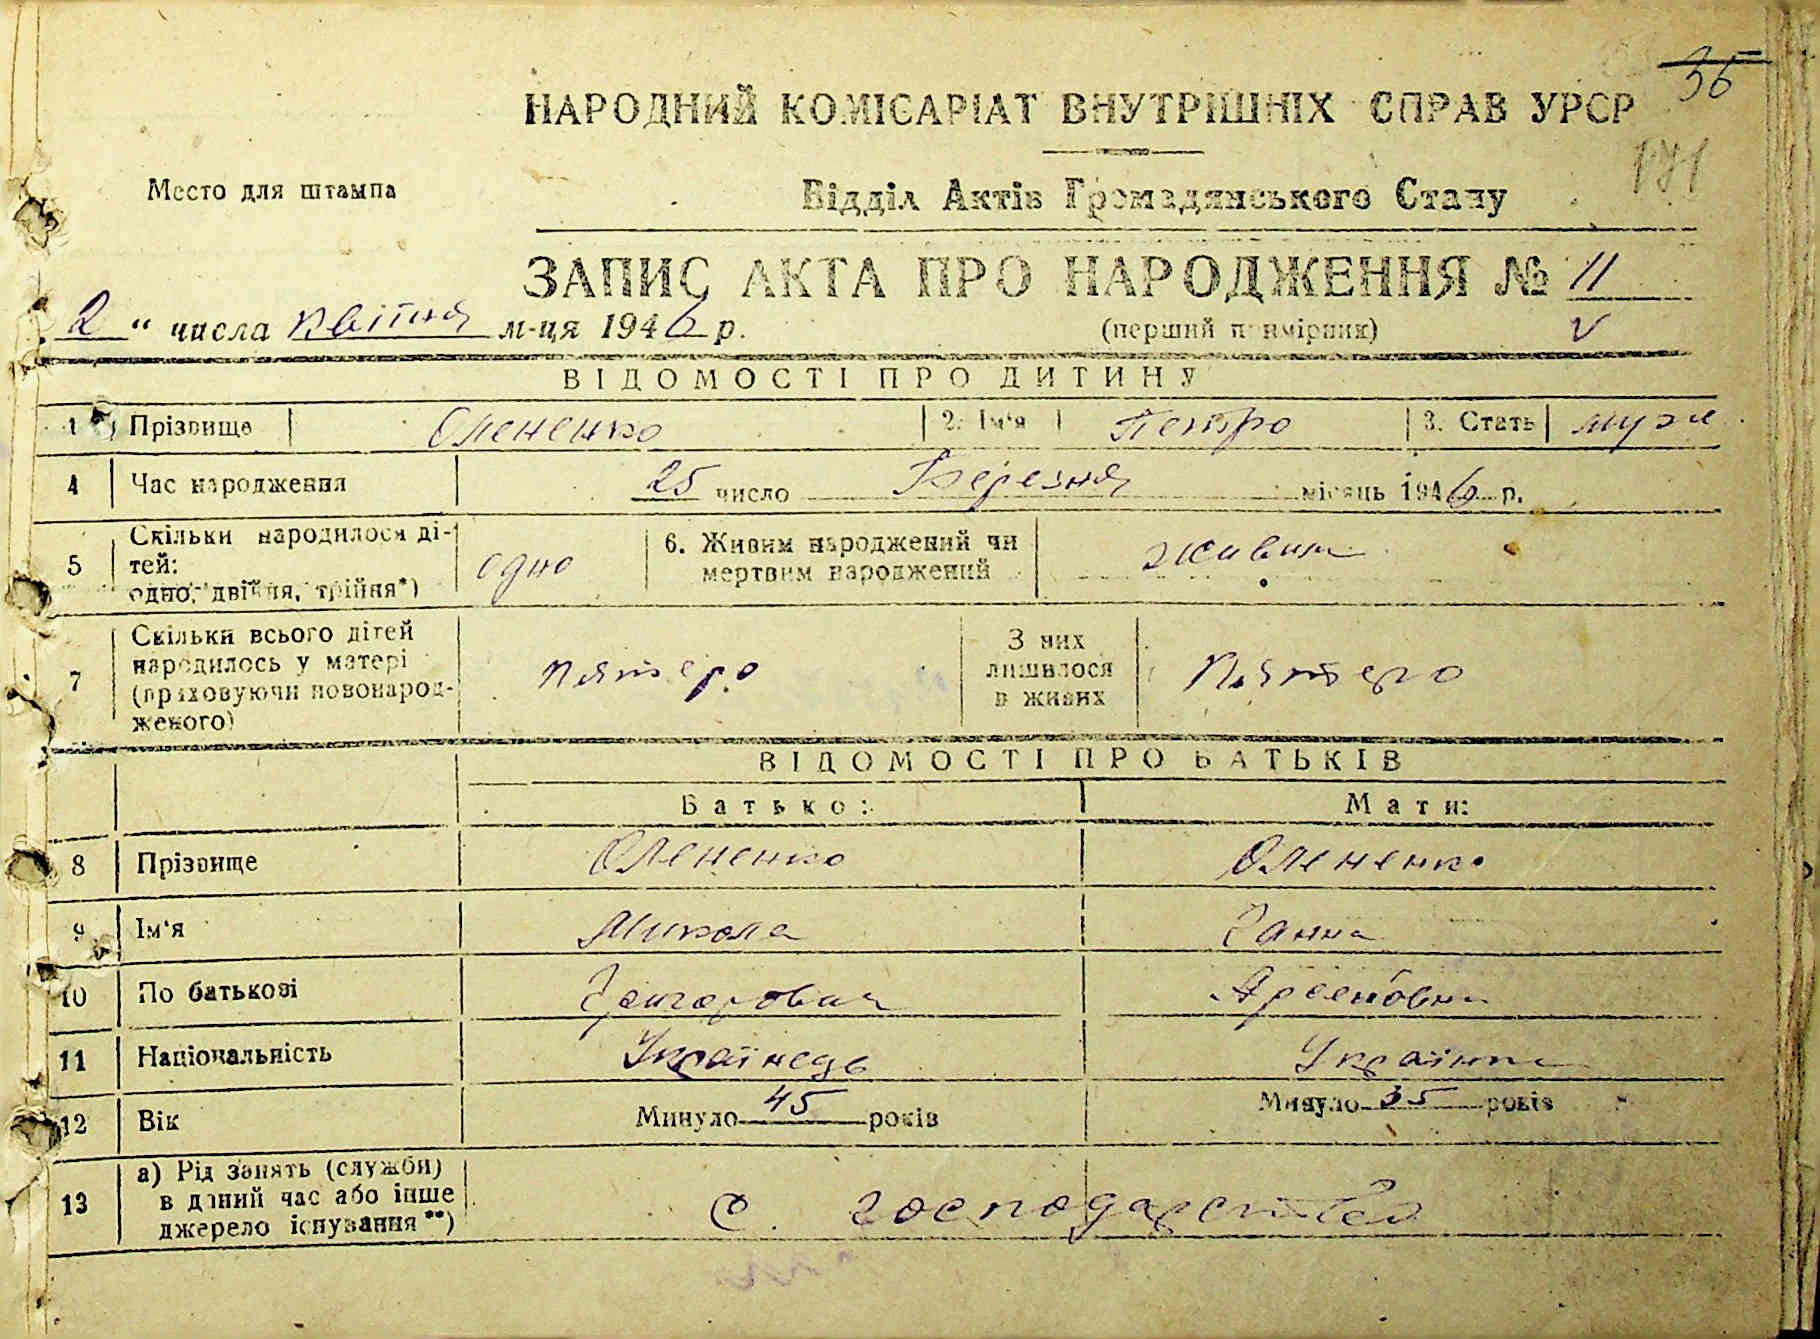 35
НАРОДНИЙ КОМІСАРІАТ ВНУТРІШНІХ СПРАВ УРСР
171
Место для штампа
Відділ Актів Громадянського Стану
ЗАПИС АКТА ПРО НАРОДЖЕННЯ № 11
2 " числа квітня м-ця 1946 р.
(перший примірник)
V
ВІДОМОСТІ ПРО ДИТИНУ
1 Прізвище Олененко 2. Ім'я Петро 3. Стать муж
4 Час народження 25 число Березня місяць 1946 р.
5 Скільки народилося ді-
тей:
одно, двійня, трійня*)
одно
6. Живим народжений чи
мертвим народжений
живим
7 Скільки всього дітей
народилось у матері
(враховуючи новонарод-
женого)
пятеро
З них
лишилося
в живих
Пятеро
ВІДОМОСТІ ПРО БАТЬКІВ
Батько: Мати:
8 Прізвище Олененко Олененко
9 Ім'я Микола Ганна
10 По батькові Григорович Арсеновна
11 Національність Українець Українка
12 Вік Минуло 45 років Минуло 35 років
13 а) Рід занять (служби)
в даний час або інше
джерело існування**)
С. господарство